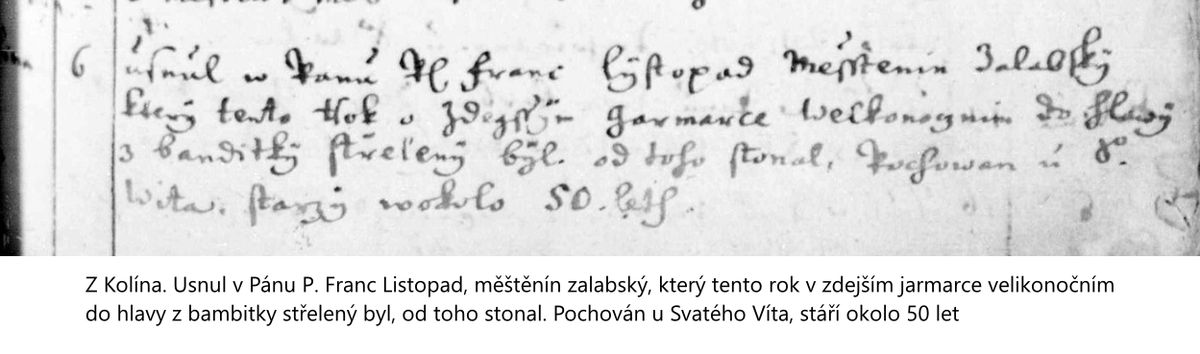 6 usnul w Panu P. Franc Lystopad Messtenin Zalabsky
ktery tento Rok w Zdegssym Garmarce Welkonocnim do hlawy
z banditky střeleny byl. od toho stonal, Pochowan u S°
Wita. starzy wokolo 50. leth.
Z Kolína. Usnul v Pánu P. Franc Listopad, měštěnín zalabský, který tento rok v zdejším jarmarce velikonočním
do hlavy z bambitky střelený byl, od toho stonal. Pochován u Svatého Víta, stáří okolo 50 let